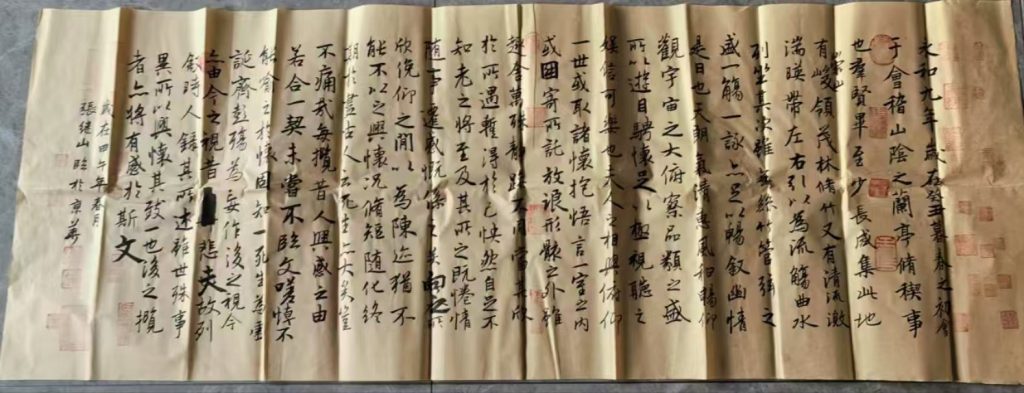 永和九年歲在癸丑暮春之初會
于會稽山陰之蘭亭脩稧事
也羣賢畢至少長咸集此地
有崇山峻領茂林脩竹又有清流激
湍暎帶左右引以為流觴曲水
列坐其次雖無絲竹管弦之
盛一觴一詠亦足以暢敘幽情
是日也天朗氣清惠風和暢仰
觀宇宙之大俯察品類之盛
所以遊目騁懷足以極視聽之
娛信可樂也夫人之相與俯仰
一世或取諸懷抱悟言一室之內
或因寄所託放浪形骸之外雖
趣舍萬殊靜躁不同當其欣
於所遇暫得於己快然自足不
知老之將至及其所之既惓情
隨事遷感慨係之矣向之所
欣俛仰之閒以為陳迹猶不
能不以之興懷況脩短隨化終
期於盡古人云死生亦大矣豈
不痛哉每攬昔人興感之由
若合一契未嘗不臨文嗟悼不
能喻之於懷固知一死生為虛
誕齊彭殤為妄作後之視今
亦由今之視昔悲夫故列
敘時人錄其所述雖世殊事
異所以興懷其致一也後之攬
者亦將有感於斯文
歲在甲午年春月
張繼山臨於京華